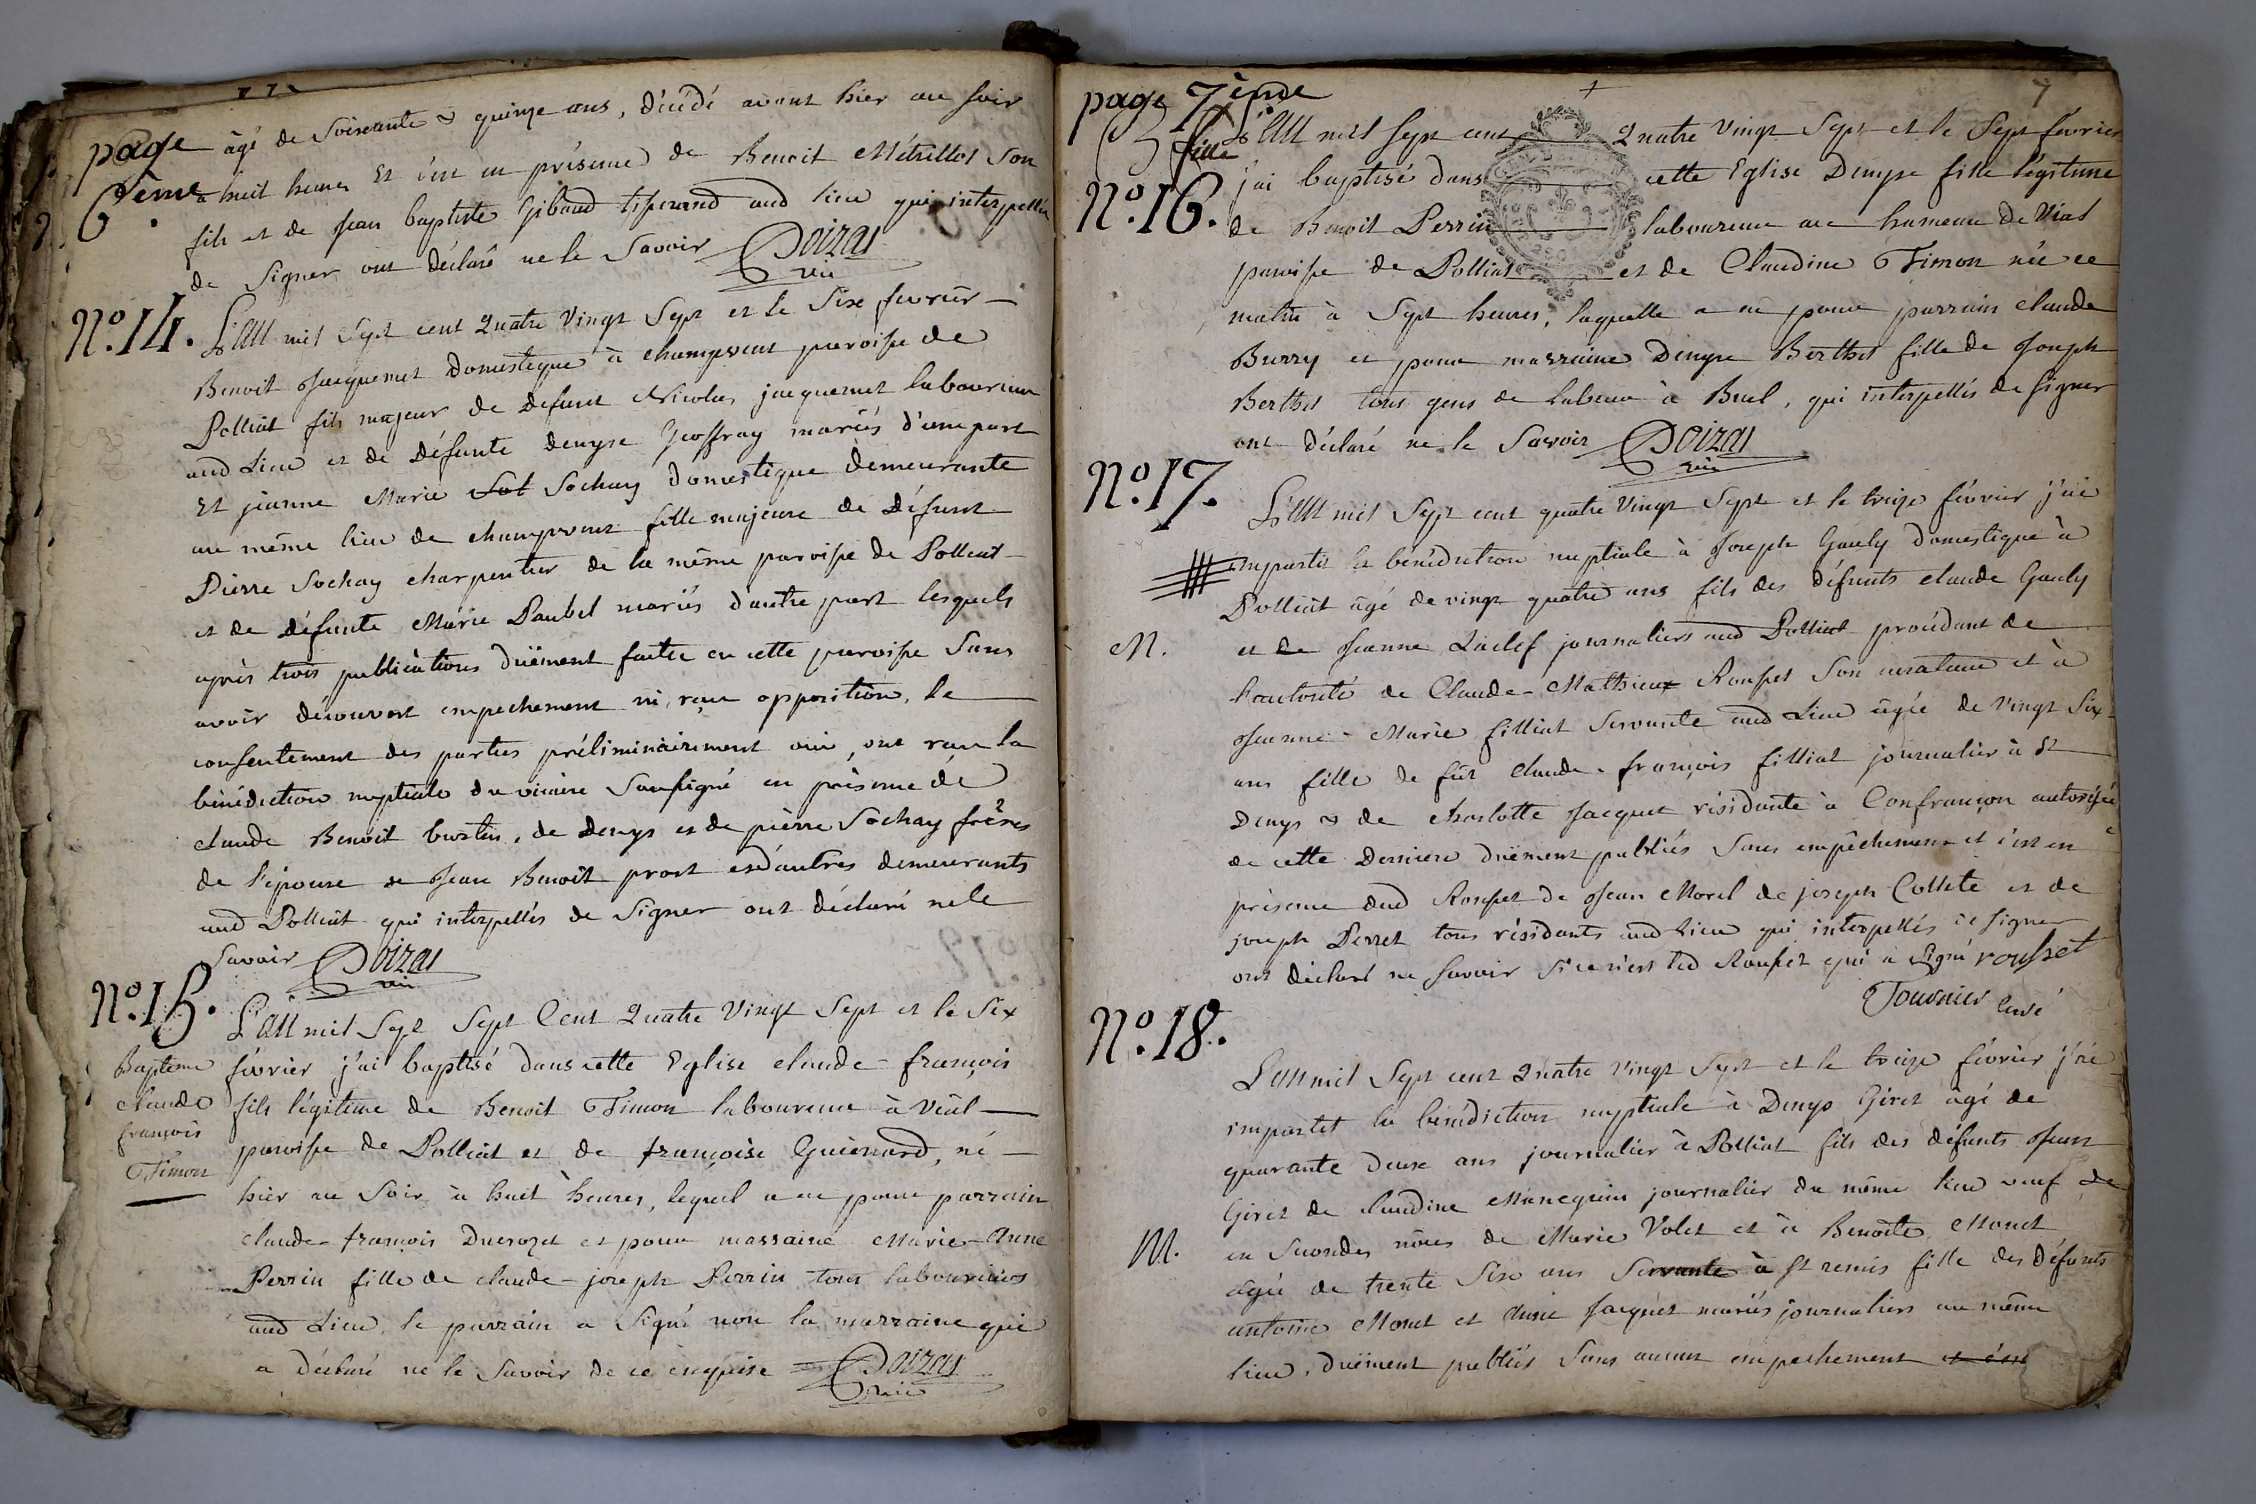 page
6ème
âgé de Soixante & quinze ans, décédé avant hier au soir
à huit heures Et c'est en présence de Benoit Métrillot Son
fils et de jean baptiste Gibaud tisserand aud lieu qui interpellés
de Signer ont déclaré ne le Savoir Doizat
vic
N°.14.
L'an mil Sept cent Quatre Vingt Sept et le Six fevrier
Benoit Jacquemet domestique à champvent paroisse de
Polliat fils majeur de defunt Nicolas jacquemet laboureur
aud Lieu et de Défunte denyse Geoffray mariés d'une part
Et jeanne Marie Sot Sochay domestique demeurante
au même lieu de champvent fille majeure de Défunt
Pierre Sochay charpentier de la même paroisse de Polliat
et de défunte Marie Paubel mariés d'autre part lesquels
après trois publications duëment faites en cette paroisse Sans
avoir découvert empechement ni, reçu opposition, le
consentement des parties préliminairement oui, ont reçu la
bénédiction nuptiale du vicaire Soussigné en présence de
claude Benoit burtin, de denys et de pierre Sochay frères
de l'épouse de Jean Benoît prost et d'autres demeurants
aud Polliat qui interpellés de Signer ont déclaré ne le
Savoir Doizat
vic
N°.15.
Bapteme
claude
françois
Timon
L'an mil Sept Sept Cent Quatre Vingt Sept et le Six
février j'ai baptisé dans cette Eglise claude-françois
fils légitime de Benoit Timon laboureur à Vial
paroisse de Polliat et de françoise Guienard, né
hier au Soir à huit heures, lequel a eu pour parrain
claude-françois Ducrozet et pour marraine Marie-Anne
Perrin fille de claude-joseph Perrin tous laboureurs
aud Lieu, le parrain a Signé non la marraine qui
a déclaré ne le Savoir de ce enquise Doizat
vic
page 7ème
7
fille
N°.16.
L'an mil Sept cent Quatre Vingt Sept et le Sept février
j'ai baptisé dans cette Eglise Denyse fille légitime
de Benoit Perrin laboureur au hameau de Vial
paroisse de Polliat et de Claudine Timon née ce
matin à Sept heures, laquelle a eu pour parrain claude
Burry et pour marraine Denyse Berthet fille de Joseph
Berthet tous gens de labeur à Bruel, qui interpellés de signer
ont déclaré ne le Savoir Doizat
vic
N°.17.
M.
L'an mil Sept cent quatre Vingt Sept et le treize février j'ai
imparti la bénédiction nuptiale à Joseph Gauly domestique à
Polliat âgé de vingt quatre ans fils des défunts claude Gauly
et de Jeanne Laclef journaliers aud Polliat procédant de
l'autorité de Claude-Mathieu Rousset Son curateur et à
Jeanne-Marie filliat Servante aud Lieu agée de Vingt Six
ans fille de fut claude-françois filliat journalier à St
Denys & de charlotte Jacquet résidante à Confrançon autorisée
de cette Derniere duëment publiés Sans empêchement et c'est en
présence dud Rousset de Jean Morel de joseph Collete et de
joseph Perret tous résidants aud Lieu qui interpellés de signer
ont déclaré ne Savoir Si ce n'est led Rousset qui a Signé rousset
Tournier curé
N°.18.
M.
L'an mil Sept cent Quatre Vingt Sept et le treize février j'ai
impartit la bénédiction nuptiale à Denys Giret âgé de
quarante Deux ans journalier à Polliat fils des défunts Jean
Giret de claudine Manequin journalier du même lieu veuf de
en Secondes nôces de Marie Volet et à Benoîte Monet
agée de trente Six ans Servante à St remis fille des Défunts
antoine Monet et Anne Jacquet mariés journaliers au même
lieu, duëment publiés Sans aucun empechement et c'est